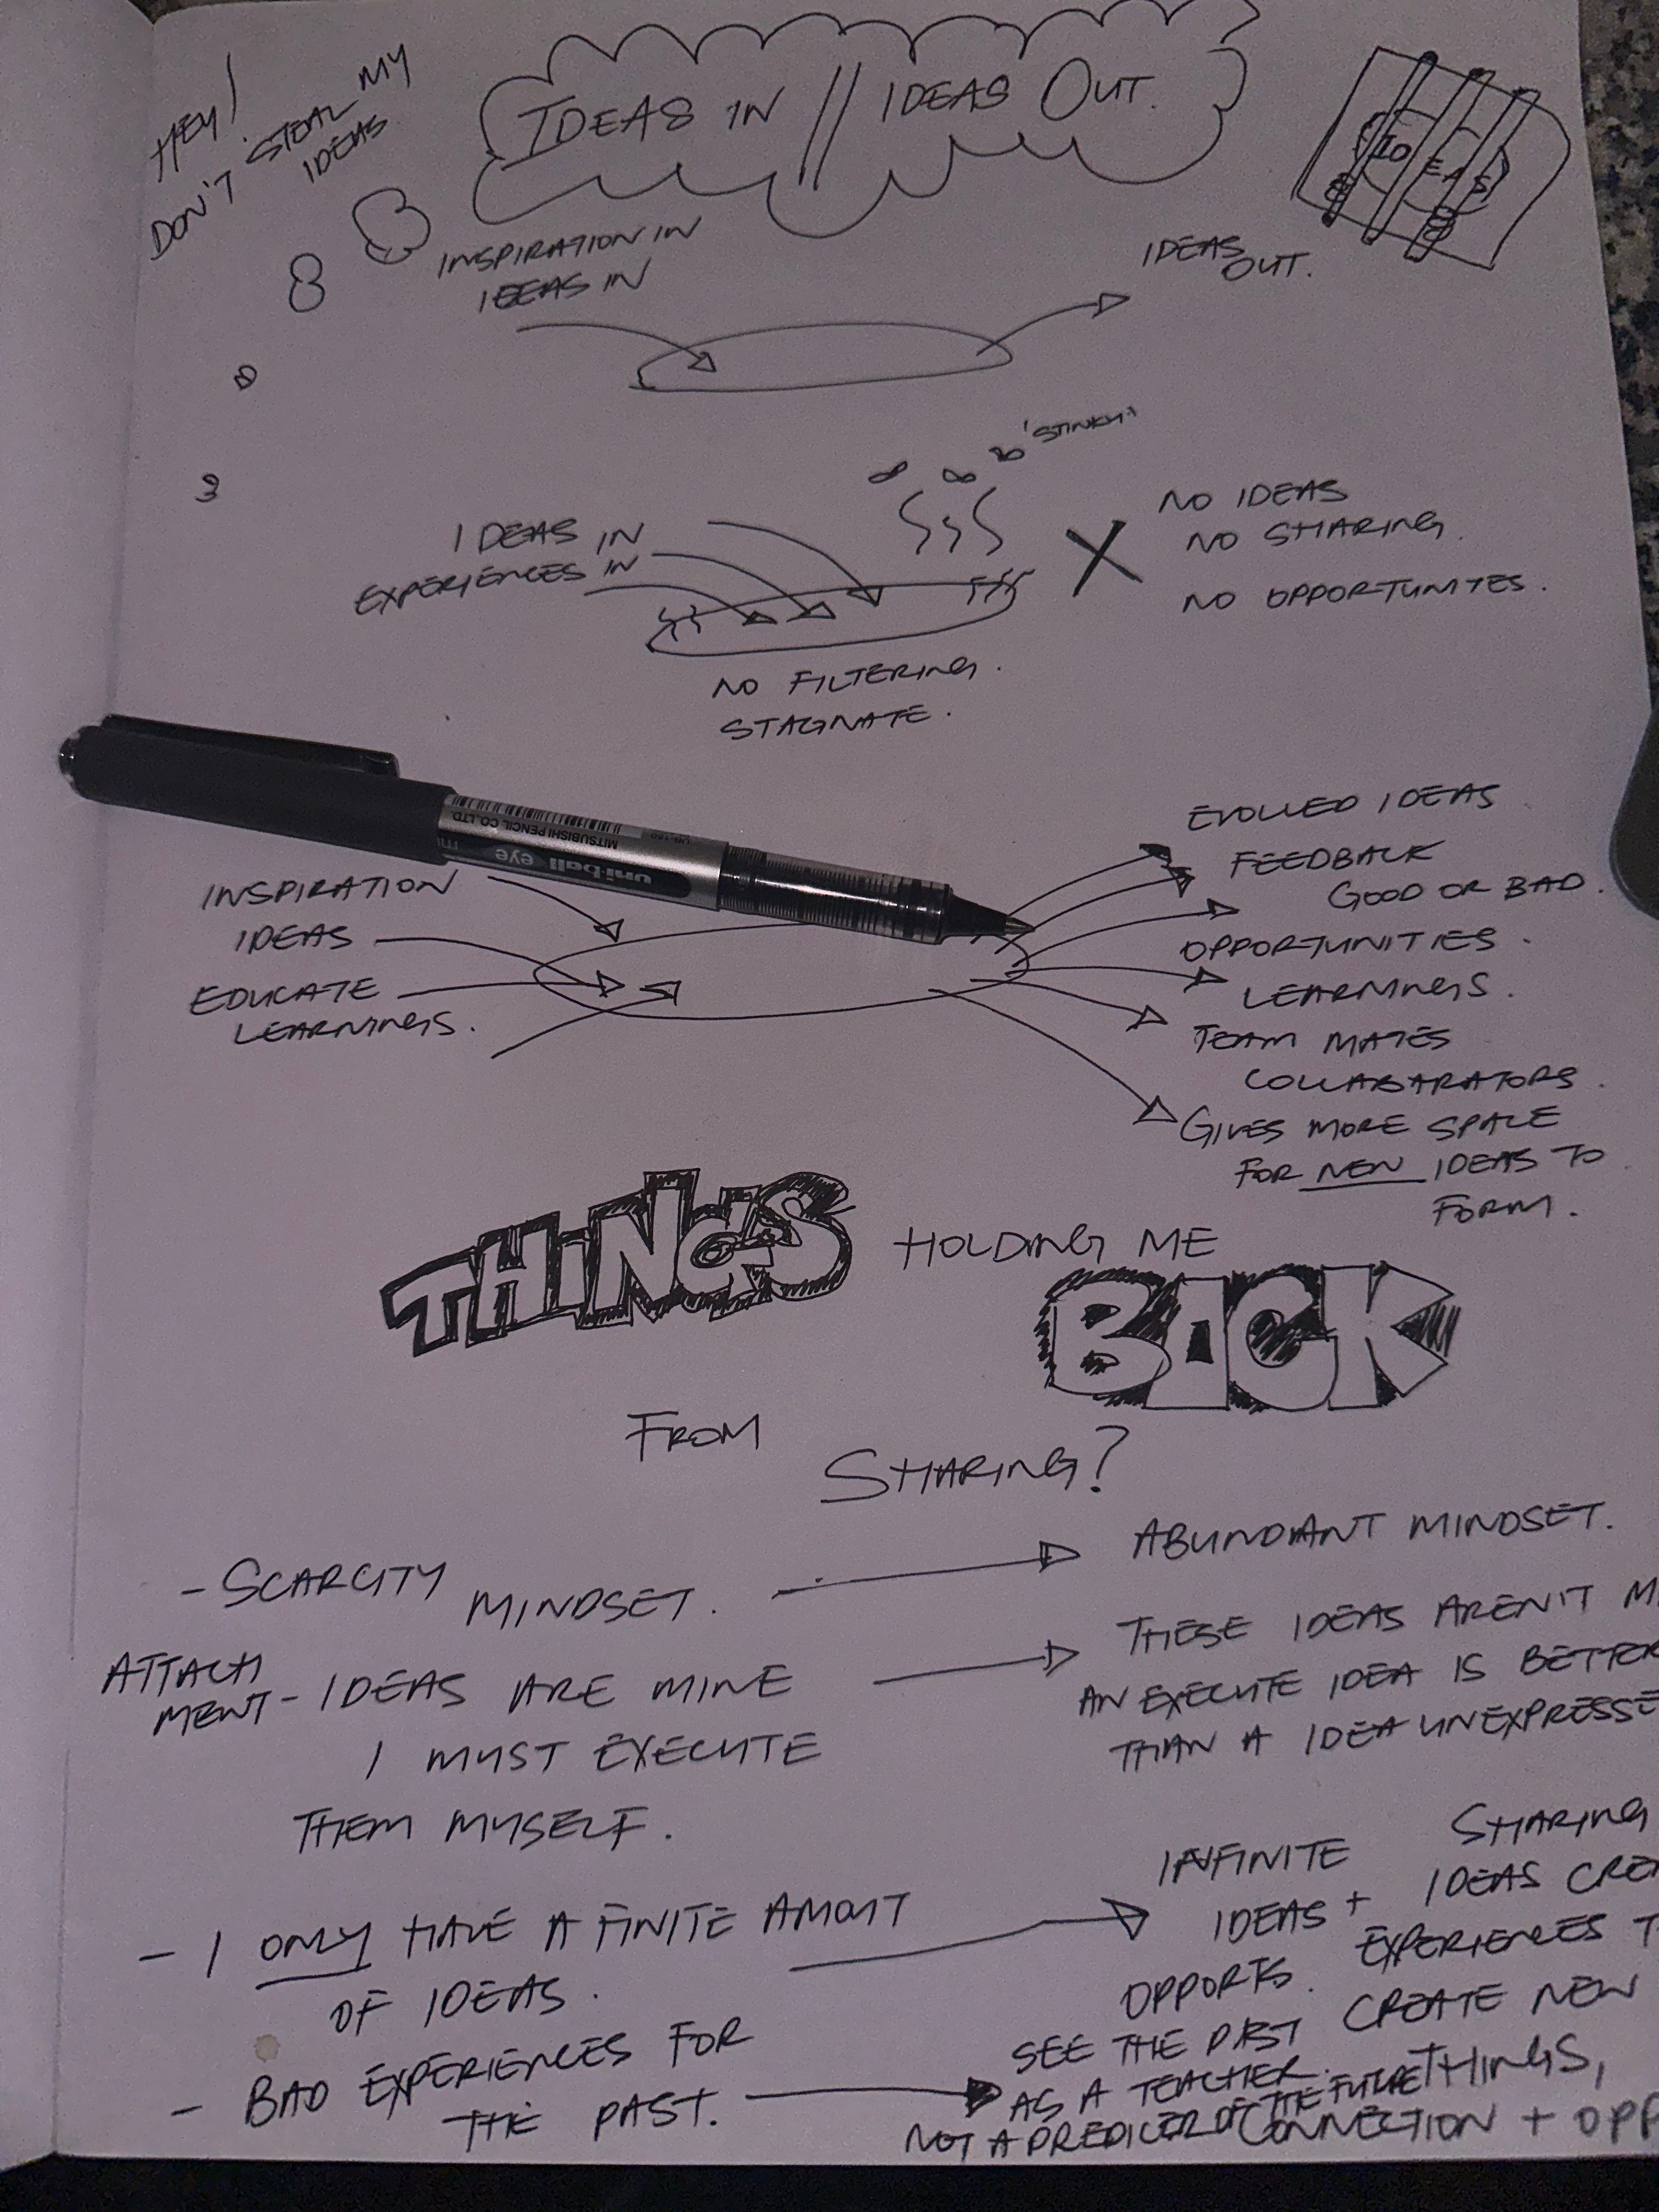 HEY!
DON'T STEAL MY
IDEAS.
IDEAS IN // IDEAS OUT.
IDEAS
INSPIRATION IN
IDEAS IN
IDEAS
OUT.
'STINKY'
IDEAS IN
EXPERIENCES IN
NO IDEAS
NO SHARING.
NO OPPORTUNITES.
NO FILTERING.
STAGNATE.
MITSUBISHI PENCIL CO. LTD.
uni-ball eye
INSPIRATION
IDEAS
EDUCATE
LEARNINGS.
EVOLVED IDEAS
FEEDBACK
GOOD OR BAD.
OPPORTUNITIES.
LEARNINGS.
TEAM MATES
COLLABARATORS.
GIVES MORE SPACE
FOR NEW IDEAS TO
FORM.
THINGS HOLDING ME
BACK
FROM
SHARING?
- SCARCITY
MINDSET.
ABUNDANT MINDSET.
ATTACH
MENT - IDEAS ARE MINE
I MUST EXECUTE
THEM MYSELF.
THESE IDEAS AREN'T M
AN EXECUTE IDEA IS BETTER
THAN A IDEA UNEXPRESSE
- I ONLY HAVE A FINITE AMOUT
OF IDEAS.
INFINITE
IDEAS +
OPPORTS.
SHARING
IDEAS CRE
EXPERIENCES T
CREATE NEW
THINGS,
CONNECTION + OPP
- BAD EXPERIENCES FOR
THE PAST.
SEE THE PAST
AS A TEACHER.
NOT A PREDICER OF THE FUTURE